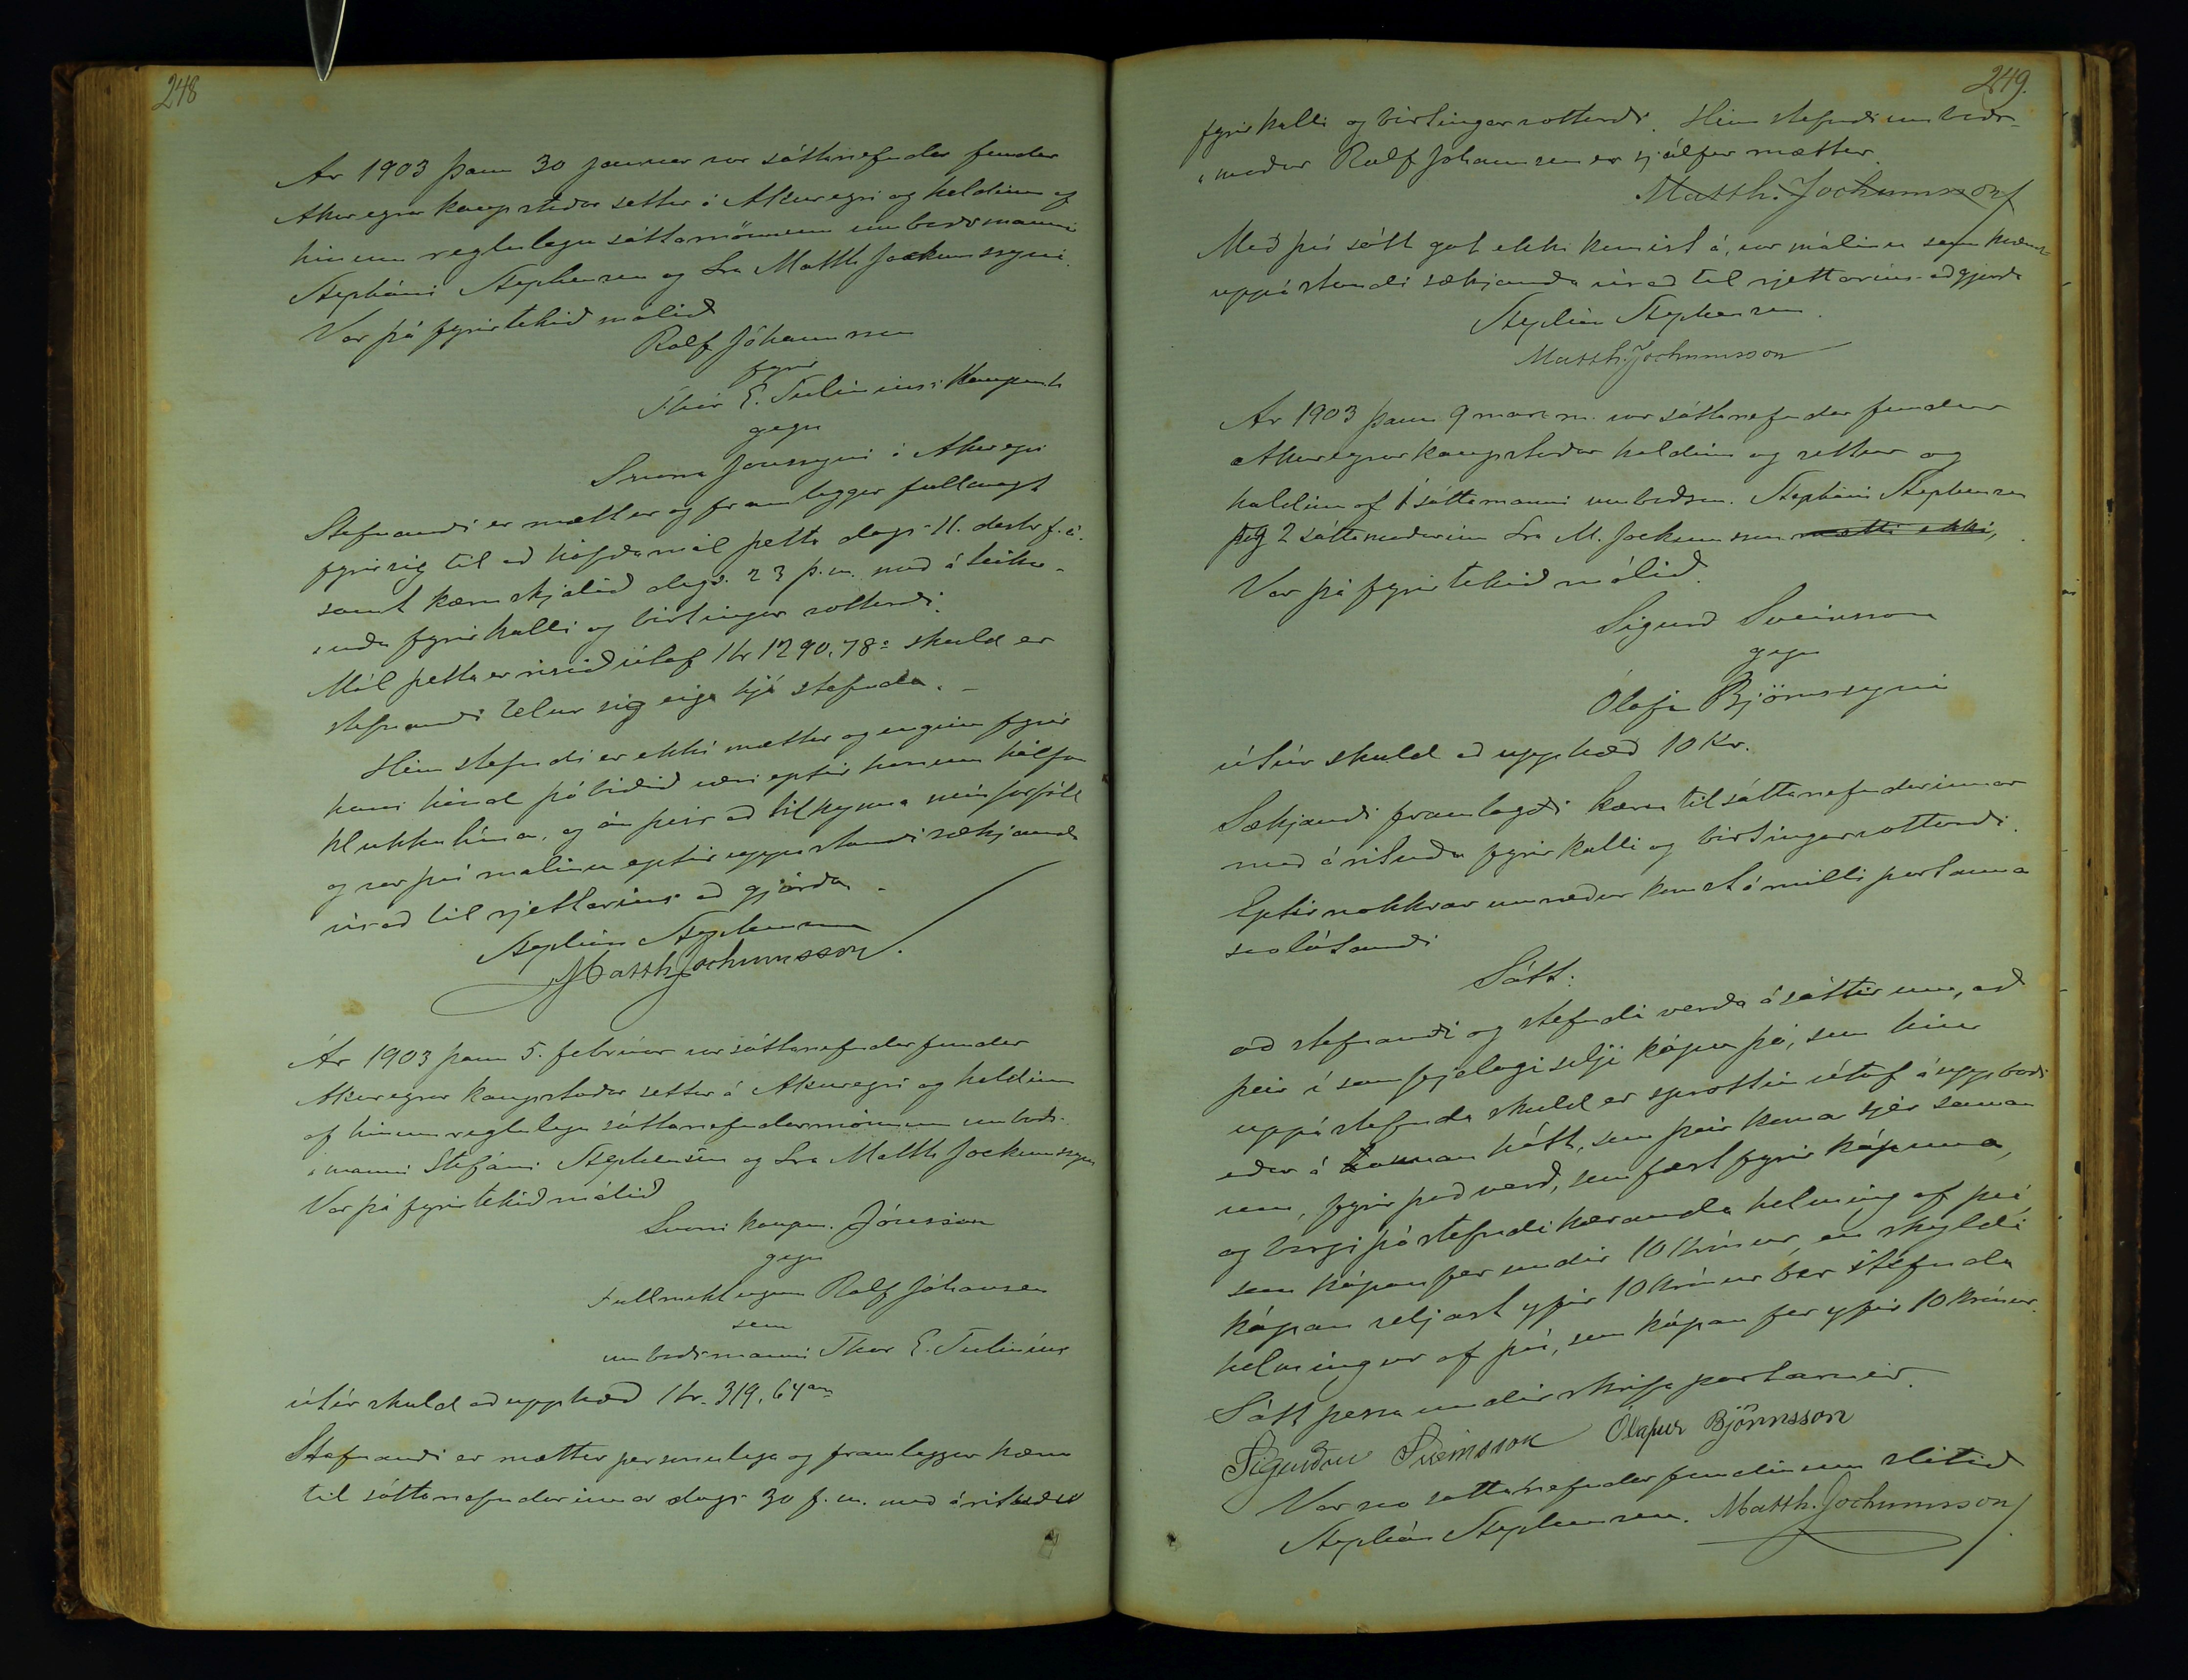 248
Ár 1903 þann 30 januar var sáttanefndar fundur
Akureyrar kaupstaðar settur á Akureyri og haldinn af
hinum reglulegu sáttamönnum umboðsmanni
Stepháni Stephensen og Sra Matth Jochumssyni.
Var þá fyrirtekið málið
Ralf Jóhannsen
fyrir
Thor E. Tulinius Kaupm
gegn
Snorra Jónssyni á Akureyri
Stefnandi er mættur og framleggur fullmagt
fyrir sig til að höfða mál þetta dags 11. desbr f. á.
samt kæruskjalið dags. 23 þ.m. með áteikn-
uðu fyrirkalli og birtingarvottorði.
Mál þetta er risið útaf Kr 1290,78 a skuld er
stefnandi telur sig eiga hjá stefnda. –
Hinn stefndi er ekki mættur og enginn fyrir
hans hönd þó biðið væri eptir honum hálfan
klukkutíma, og án þess að tilkynna nein forföll
og var því malinu eptir uppástandi sækjanda
vísað til rjettarins að gjörða.
Stephán Stephensen
Matth Jochumsson.
Ár 1903 þann 5. febrúar var sáttanefndarfundur
Akureyrar kaupstaðar settur á Akureyri og haldinn
af hinum reglulegu sáttanefndarmönnum umboðs-
manni Stefáni Stephensen og Sra Matth Jochumssyni
Var þá fyrirtekið málið
Snorri kaupm. Jónsson
gegn
fullmektugum Ralf Jóhansen
sem
umboðsmanni Thor E. Tulinius
útúr skuld að upphæð Kr. 319,64 au
Stefnandi er mættur personulega og framleggur kæru
til sáttanefndarinnar dags 30 f. m. með árituðu
249.
fyrirkalli og birtingarvottorði. Hinn stefndi umboðs-
maður Ralf Johannsen er sjálfur mættur.
Matth. Jochumsson
Með því sátt gat ekki komist á, var málinu
uppástandi sækjanda vísað til rjettarins aðgjorða
Stephán Stephensen.
Matth. Jochumsson
Ár 1903 þann 9 mars m. var sáttanefndar fundur
Akureyrarkaupstaðar haldinn og settur og
haldinn af 1 sáttamanni umboðsm. Stepháni Stephensen
og 2 sáttamaðurinn Sra M. Jochumsson mætti ekki,
Var þá fyrirtekið málið.
Sigurð Sveinsson
gegn
Ólafi Björnssyni
útúr skuld að upphæð 10 Kr.
Sækjandi framlagði kæru til sáttanefndarinnar
með árituðu fyrirkalli og birtingarvottorði.
Eptir nokkrar umræður komst á milli partanna
svolátandi
Sátt:
að stefnandi og stefndi verða ásáttir um, að
þeir í samfjelagi selji kápu þá, sem hin
uppástefnda skuld er sprottin útaf á uppboði
eður á annan hátt, sem þeir koma sjer saman
um, fyrir það verð, sem fæst fyrir kápuna,
og borgi þá stefndi kæranda helming af því
sem kápan fer undir 10 krónur, en skyldi
kápan seljast yfir 10 krónur ber stefnda
helmingur af því, sem kápan fer yfir 10 krónur.
Sátt þessa undirskrifa partarnir.
Sigurður Sveinsson Ólafur Björnsson
Var svo sáttanefndarfundinum slitið
Stephán Stephensen. Matth. Jochumsson